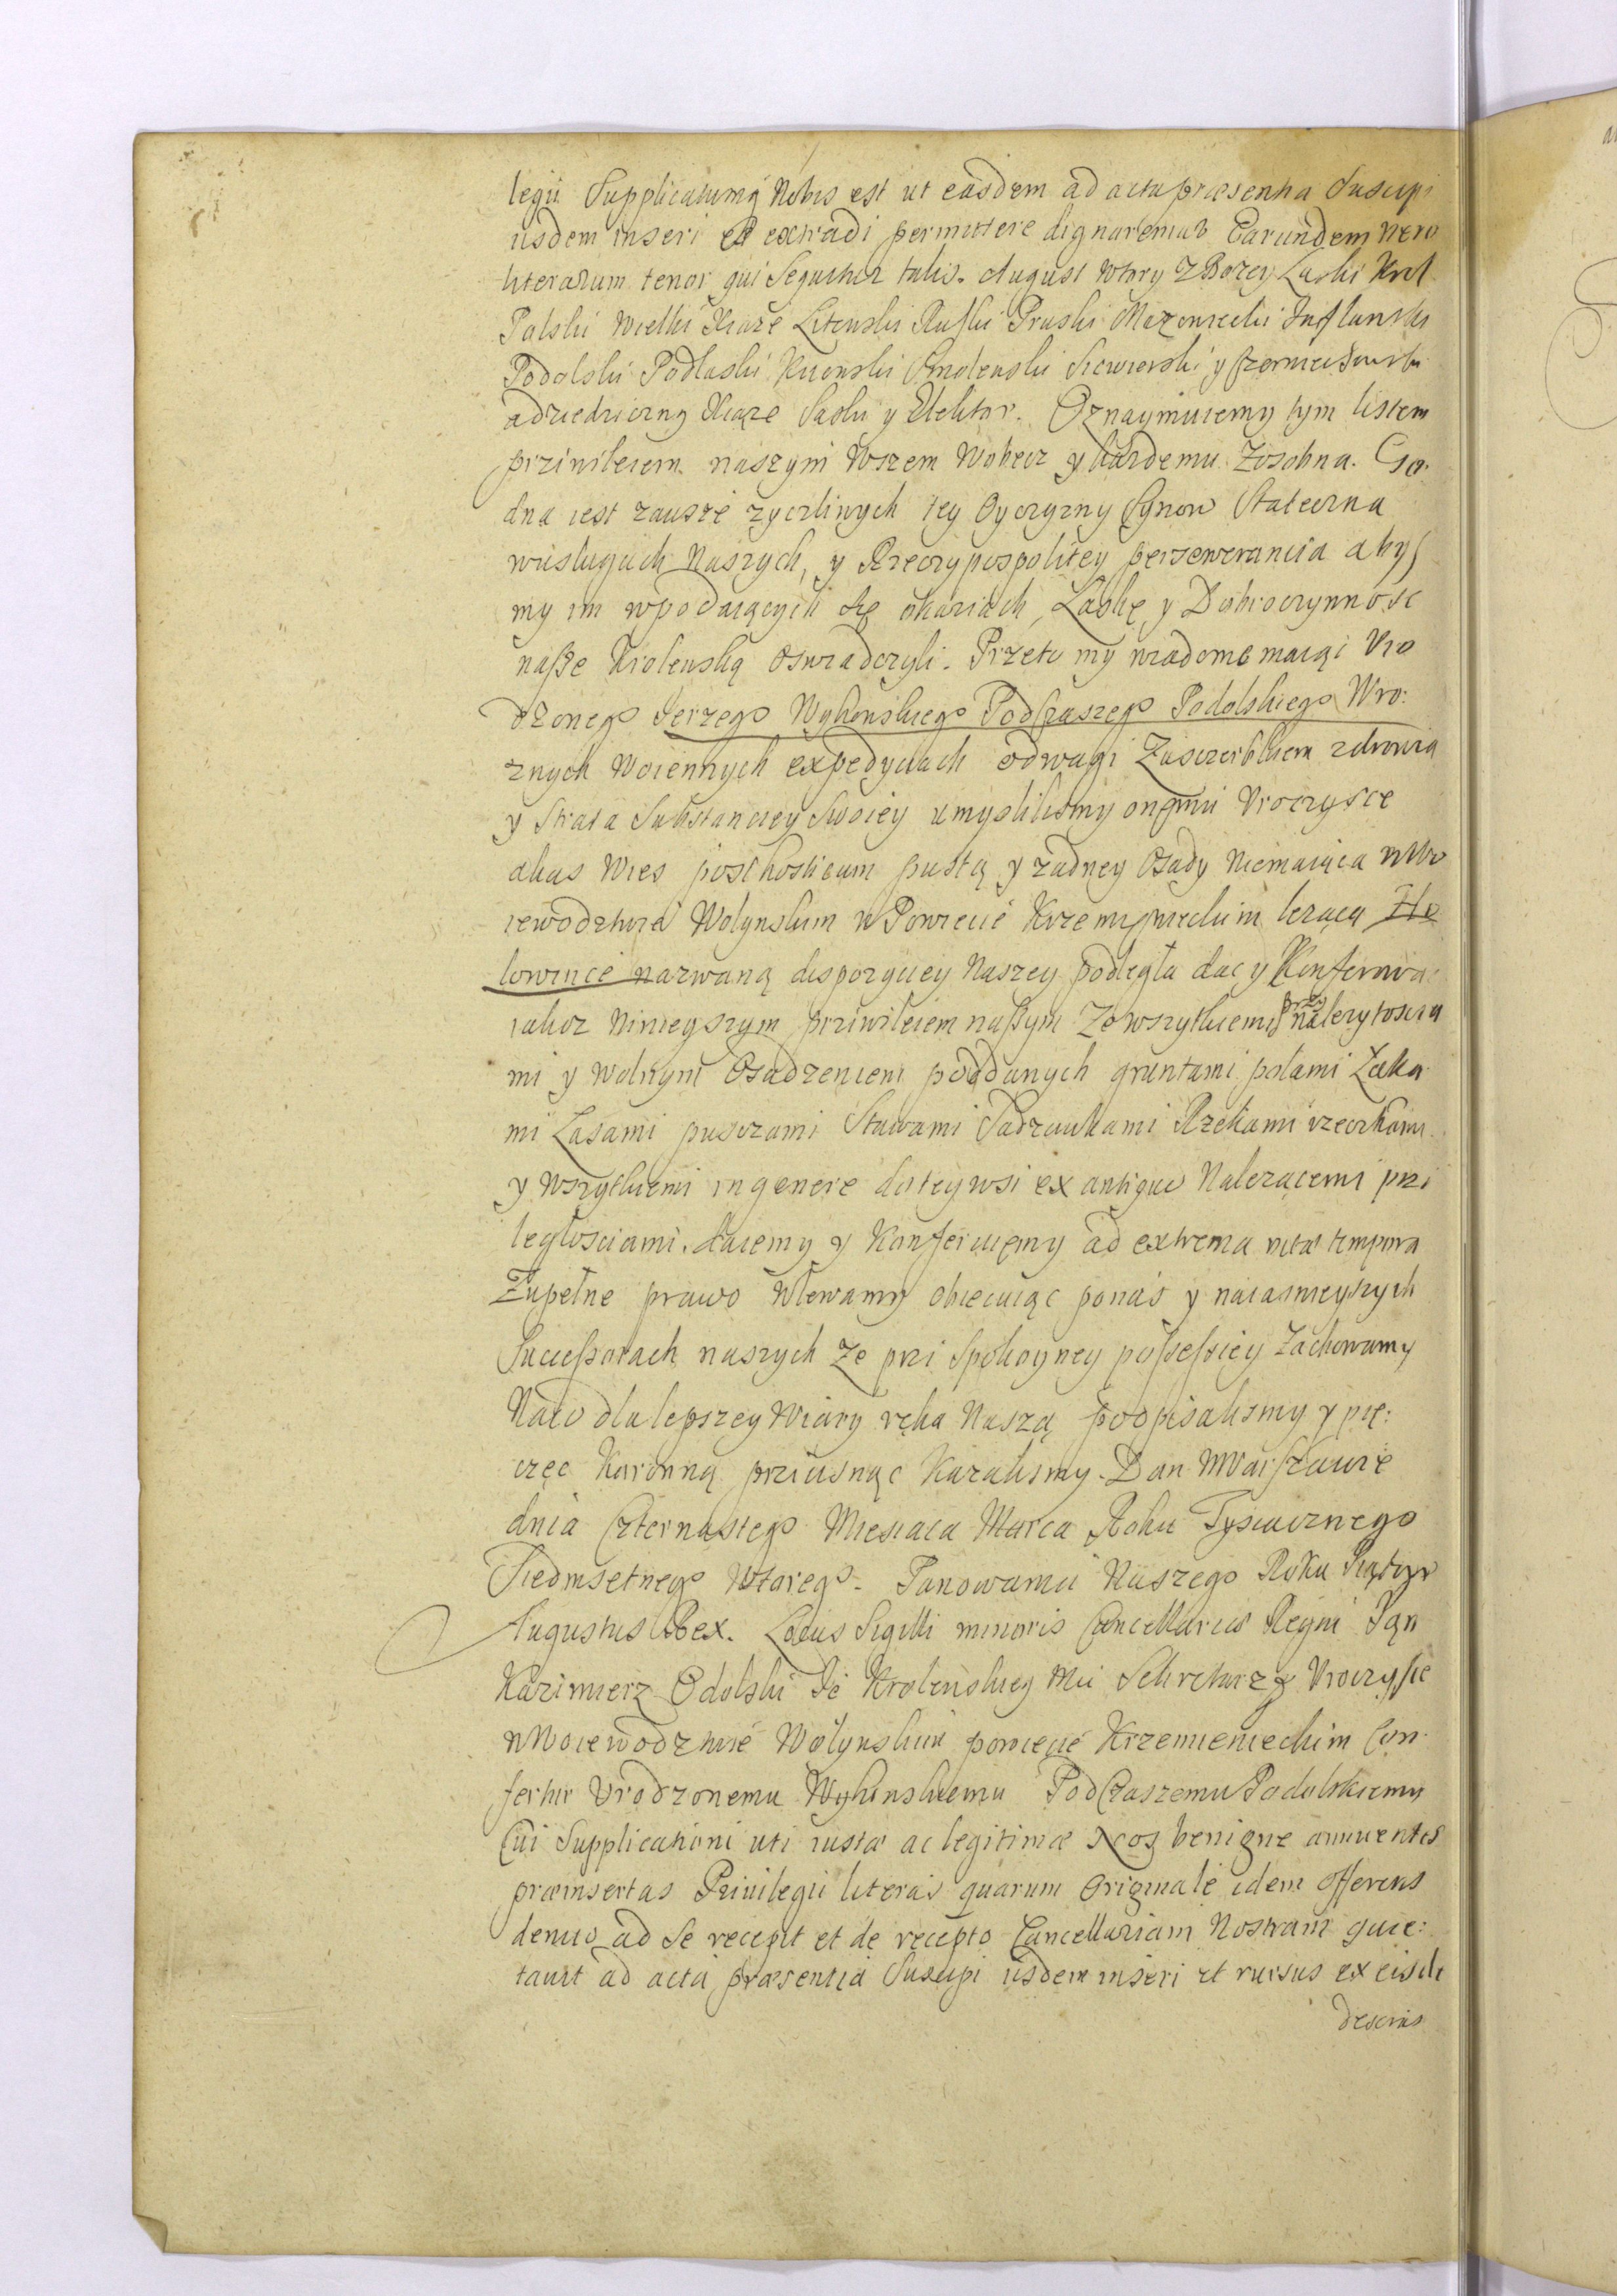 legii Supplicatumq Nobis est ut easdem ad acta præsentia Suscipi
iisdem inseri et extradi permittere dignaremur Earundem vero
literarum tenor qui Sequitur talis. August wtory Z Bozey Laski Krol
Polski Wielki Xiąze Litewski Ruski Pruski Mazowiecki Inflantski
Podolski Podlaski Kiiowski Smolenski Siewierski y Czerniechowski
adziedziczny Xiąze Saski y Elektor. Oznaymuiemy tym listem
prziwileiem naszym Wszem Wobecz y kazdemu Zosobna. Go
dna iest zausze zyczliwych tey Oyczyzny Synow Stateczna
wusługach Naszych, y Rzeczypospolitey perseweranciia abyś
my im wpodaiących się okaziach, Laskę y Dobroczynnosc
naszę Krolewską oswiadczyli. Przeto my wiadome maiąc Vro
dzonego Jerzego Wyhowskiego Podczaszego Podolskiego Wro:
znych Woiennych expedyciach odwagi Zusczerbkiem zdrowia
y Strata Substanciey Swoiey umyslilismy onemu Vroczysce
alias Wies post hosticum pustą y zadney Osady Niemaiąca wWo
iewodztwie Wolynskim w Powiecie Krzemienieckim lezącą Ho
lowince nazwaną dispozyciey Naszey podległa dac y Konferowac
iakoz Ninieyszym przivileiem naszym Zewszytkiemi przynalezytoscia
mi y wolnym Osadzeniem poddanych gruntami polami Łąka
mi Lasami pusczami Stawami Sadzawkami Rzekami rzeczkami
y wszytkiemi in genere do tey wsi ex antiquo Nalezącemi pri
ległosciami. daiemy y Konferuiemy ad extrema vitæ tempora
Zupełne prawo Wlewamy obiecuiąc ponas y naiasnieyszych
Succeßorach naszych Ze pri Spokoyney poßeßiey Zachowamy
Nato dla lepszey Wiary ręka Naszą podpisalismy y pie:
częc Koronną prziisnąc Kazalismy. Dan w Warszawie
dnia Czternastego Miesiaca Marca Roku Tysiącznego
Siedmsetnego Wtorego. Panowania Naszego Roku Piątego
Augustus Rex. Locus Sigilli minoris Cancellariæ Regni Jan
Kazimierz Odolski Je Krolewskiey Mci Sekretarz Vroczysce
wWoiewodztwie Wolynskim powiecie Krzemienieckim Con
fertur Vrodzonemu Wyhowskiemu PodCzaszemu Podolskiemu
Cui Supplicationi uti iustæ ac legitimæ Nos benigne annuentes
præinsertas Privilegii literas quarum Originale idem Offerens
denuo ad Se recepit et de recepto Cancellariam Nostram quie:
tauit ad acta præsentia Suscipi iisdem inseri et rursus ex eisde
descrie